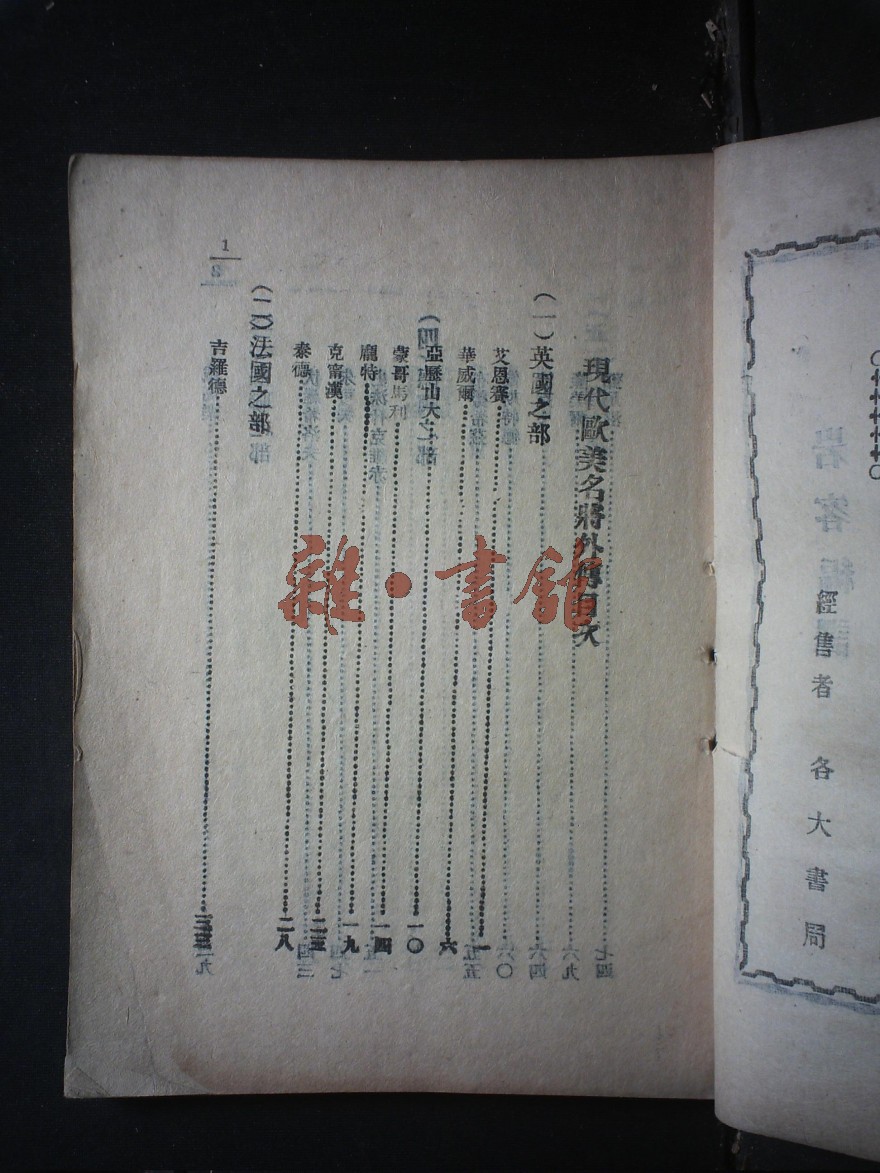 經售者 各大書局
現代歐美名將外傳目次
（一）英國之部
艾恩賽……一
華威爾……六
亞歷山大……一〇
蒙哥馬利……一四
龐特……一九
克甯漢……二三
泰德……二八
（二）法國之部
吉羅德……三三
1
雜·書館